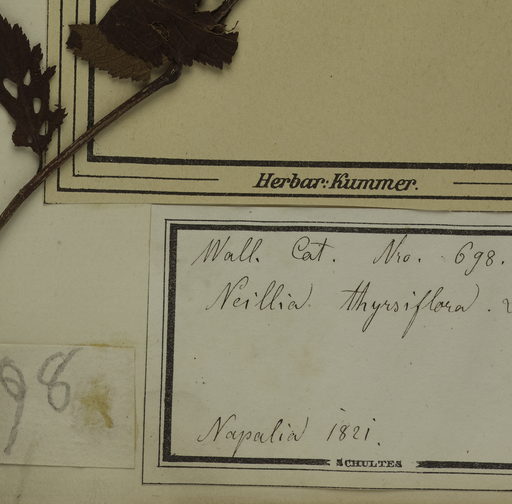 Herbar: Kummer.
Wall. Cat. Nro. 698.
Neillia thyrsiflora.
98
Napalia 1821.
SCHULTES